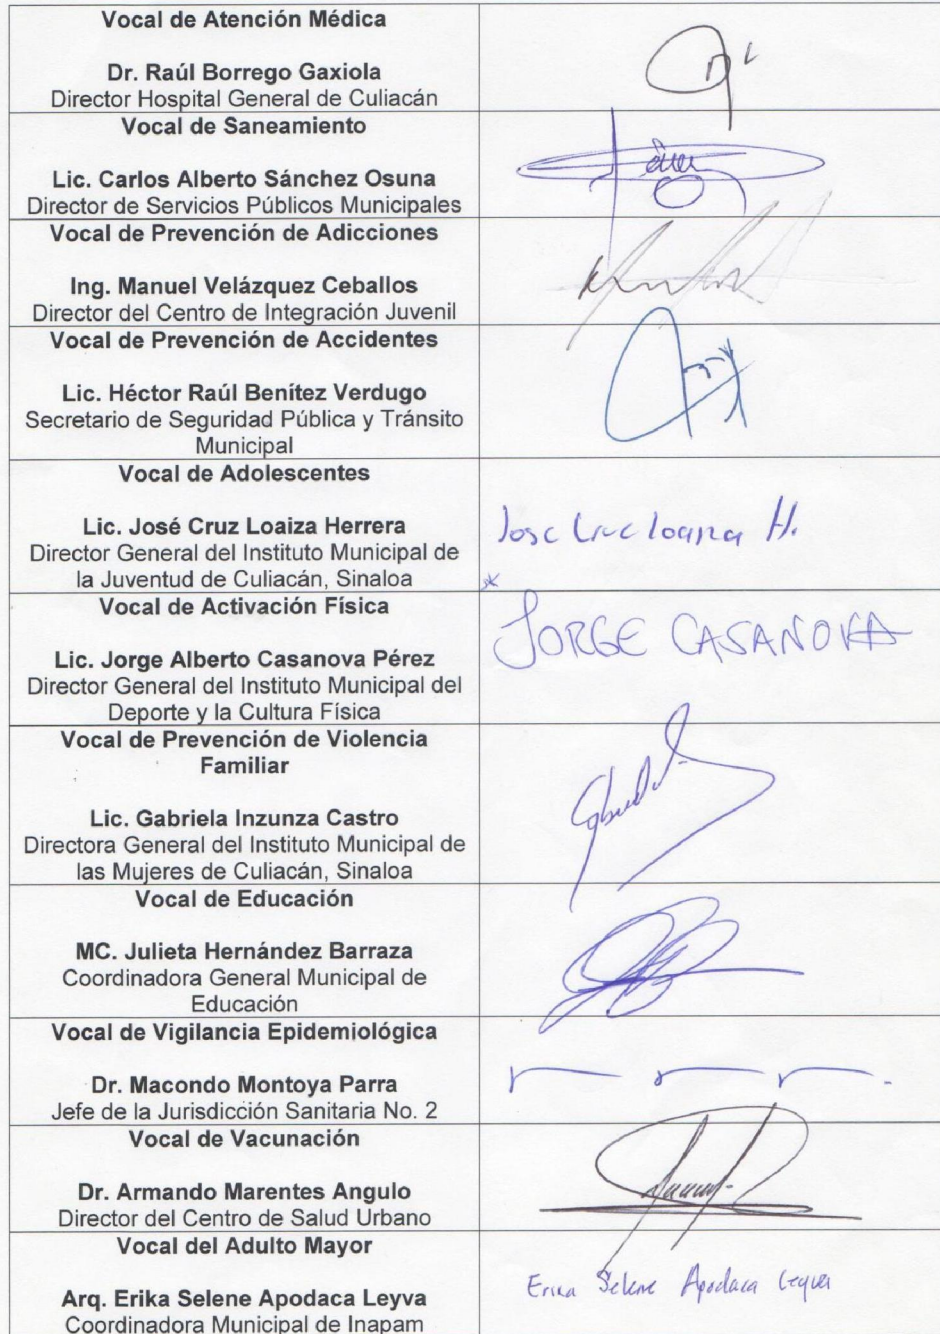 Vocal de Atención Médica
Dr. Raúl Borrego Gaxiola
Director Hospital General de Culiacán
Vocal de Saneamiento
Lic. Carlos Alberto Sánchez Osuna
Director de Servicios Públicos Municipales
Vocal de Prevención de Adicciones
Ing. Manuel Velázquez Ceballos
Director del Centro de Integración Juvenil
Vocal de Prevención de Accidentes
Lic. Héctor Raúl Benítez Verdugo
Secretario de Seguridad Pública y Tránsito
Municipal
Vocal de Adolescentes
Lic. José Cruz Loaiza Herrera
Director General del Instituto Municipal de
la Juventud de Culiacán, Sinaloa
Jose Cruz Loaiza H.
Vocal de Activación Física
Lic. Jorge Alberto Casanova Pérez
Director General del Instituto Municipal del
Deporte y la Cultura Física
JORGE CASANOVA
Vocal de Prevención de Violencia
Familiar
Lic. Gabriela Inzunza Castro
Directora General del Instituto Municipal de
las Mujeres de Culiacán, Sinaloa
Vocal de Educación
MC. Julieta Hernández Barraza
Coordinadora General Municipal de
Educación
Vocal de Vigilancia Epidemiológica
Dr. Macondo Montoya Parra
Jefe de la Jurisdicción Sanitaria No. 2
Vocal de Vacunación
Dr. Armando Marentes Angulo
Director del Centro de Salud Urbano
Vocal del Adulto Mayor
Arq. Erika Selene Apodaca Leyva
Coordinadora Municipal de Inapam
Erika Selene Apodaca Leyva